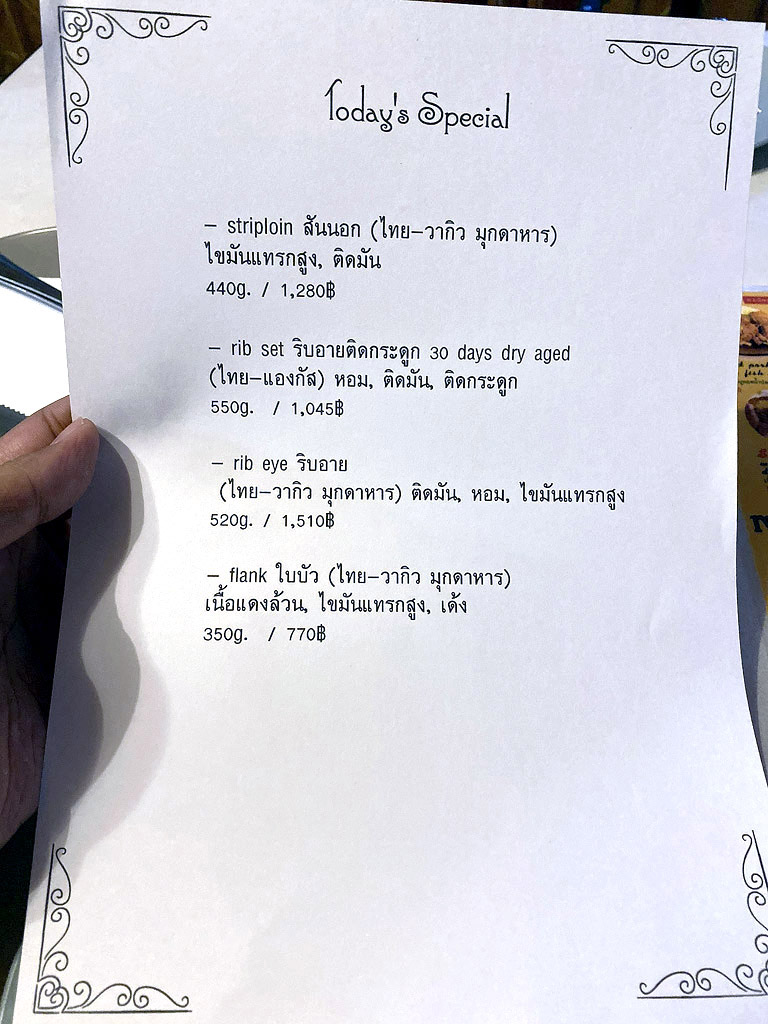 Today's Special
– striploin สันนอก (ไทย–วากิว มุกดาหาร)
ไขมันแทรกสูง, ติดมัน
440g. / 1,280฿
– rib set ริบอายติดกระดูก 30 days dry aged
(ไทย–แองกัส) หอม, ติดมัน, ติดกระดูก
550g. / 1,045฿
– rib eye ริบอาย
(ไทย–วากิว มุกดาหาร) ติดมัน, หอม, ไขมันแทรกสูง
520g. / 1,510฿
– flank ใบบัว (ไทย–วากิว มุกดาหาร)
เนื้อแดงล้วน, ไขมันแทรกสูง, เด้ง
350g. / 770฿